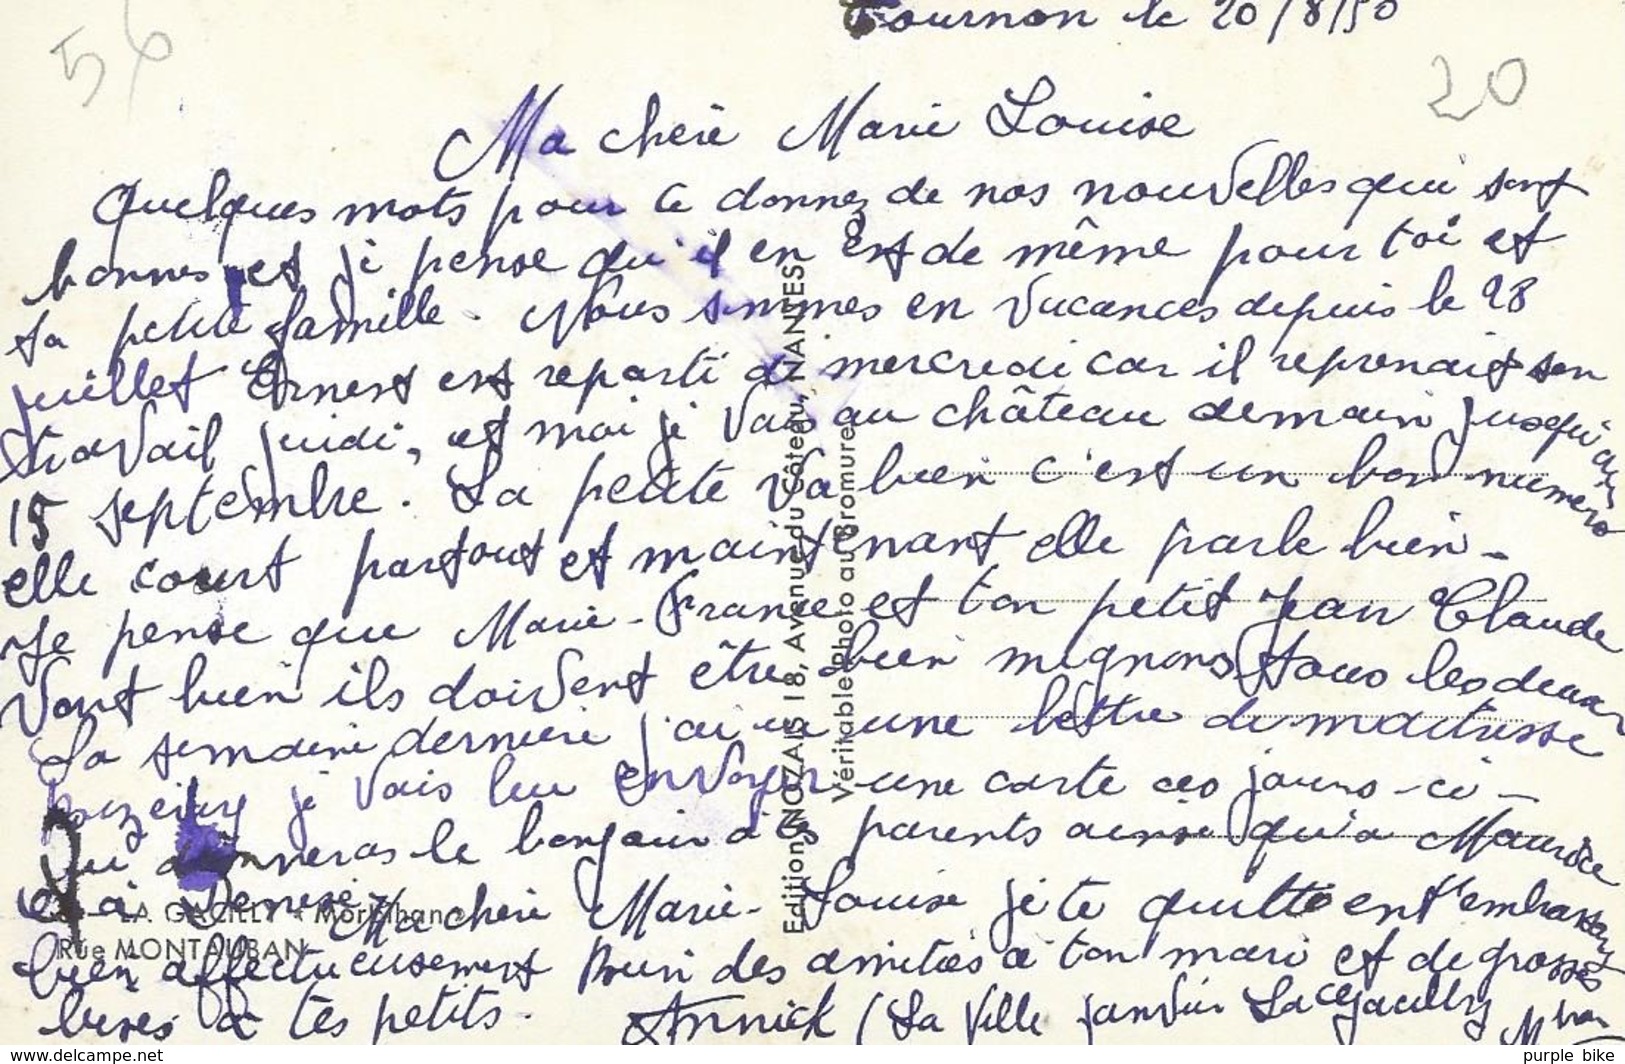 Tournon le 20/8/50
56
20
Ma chère Marie Louise
Quelques mots pour te donnez de nos nouvelles qui sont
bonnes et je pense qu'il en est de même pour toi et
ta petite famille. Nous sommes en vacances depuis le 28
juillet Ernest est reparti mercredi car il reprenait son
travail jeudi, et moi je vais au château demain jusqu'au
15 septembre. La petite va bien c'est un bon numéro
elle court partout et maintenant elle parle bien -
Je pense que Marie-France et ton petit Jean Claude
vont bien ils doivent être bien mignons tous les deux
La semaine dernière j'ai eu une lettre de maitresse
je vais leur envoyer une carte ces jours-ci -
Tu donneras le bonjour à tes parents ainsi qu'à Maurice
et à Denise. Ma chère Marie-Louise je te quitte en t'embrassant
bien affectueusement des amitiés à ton mari et de grosses
bises à tes petits. Annick (La Ville Janvier La Gacilly Mban
LA GACILLY - Morbihan
Rue MONTAUBAN
Editions NOZAIS 18, Avenue du Côteau, NANTES
Véritable photo au Bromure
www.delcampe.net
purple bike